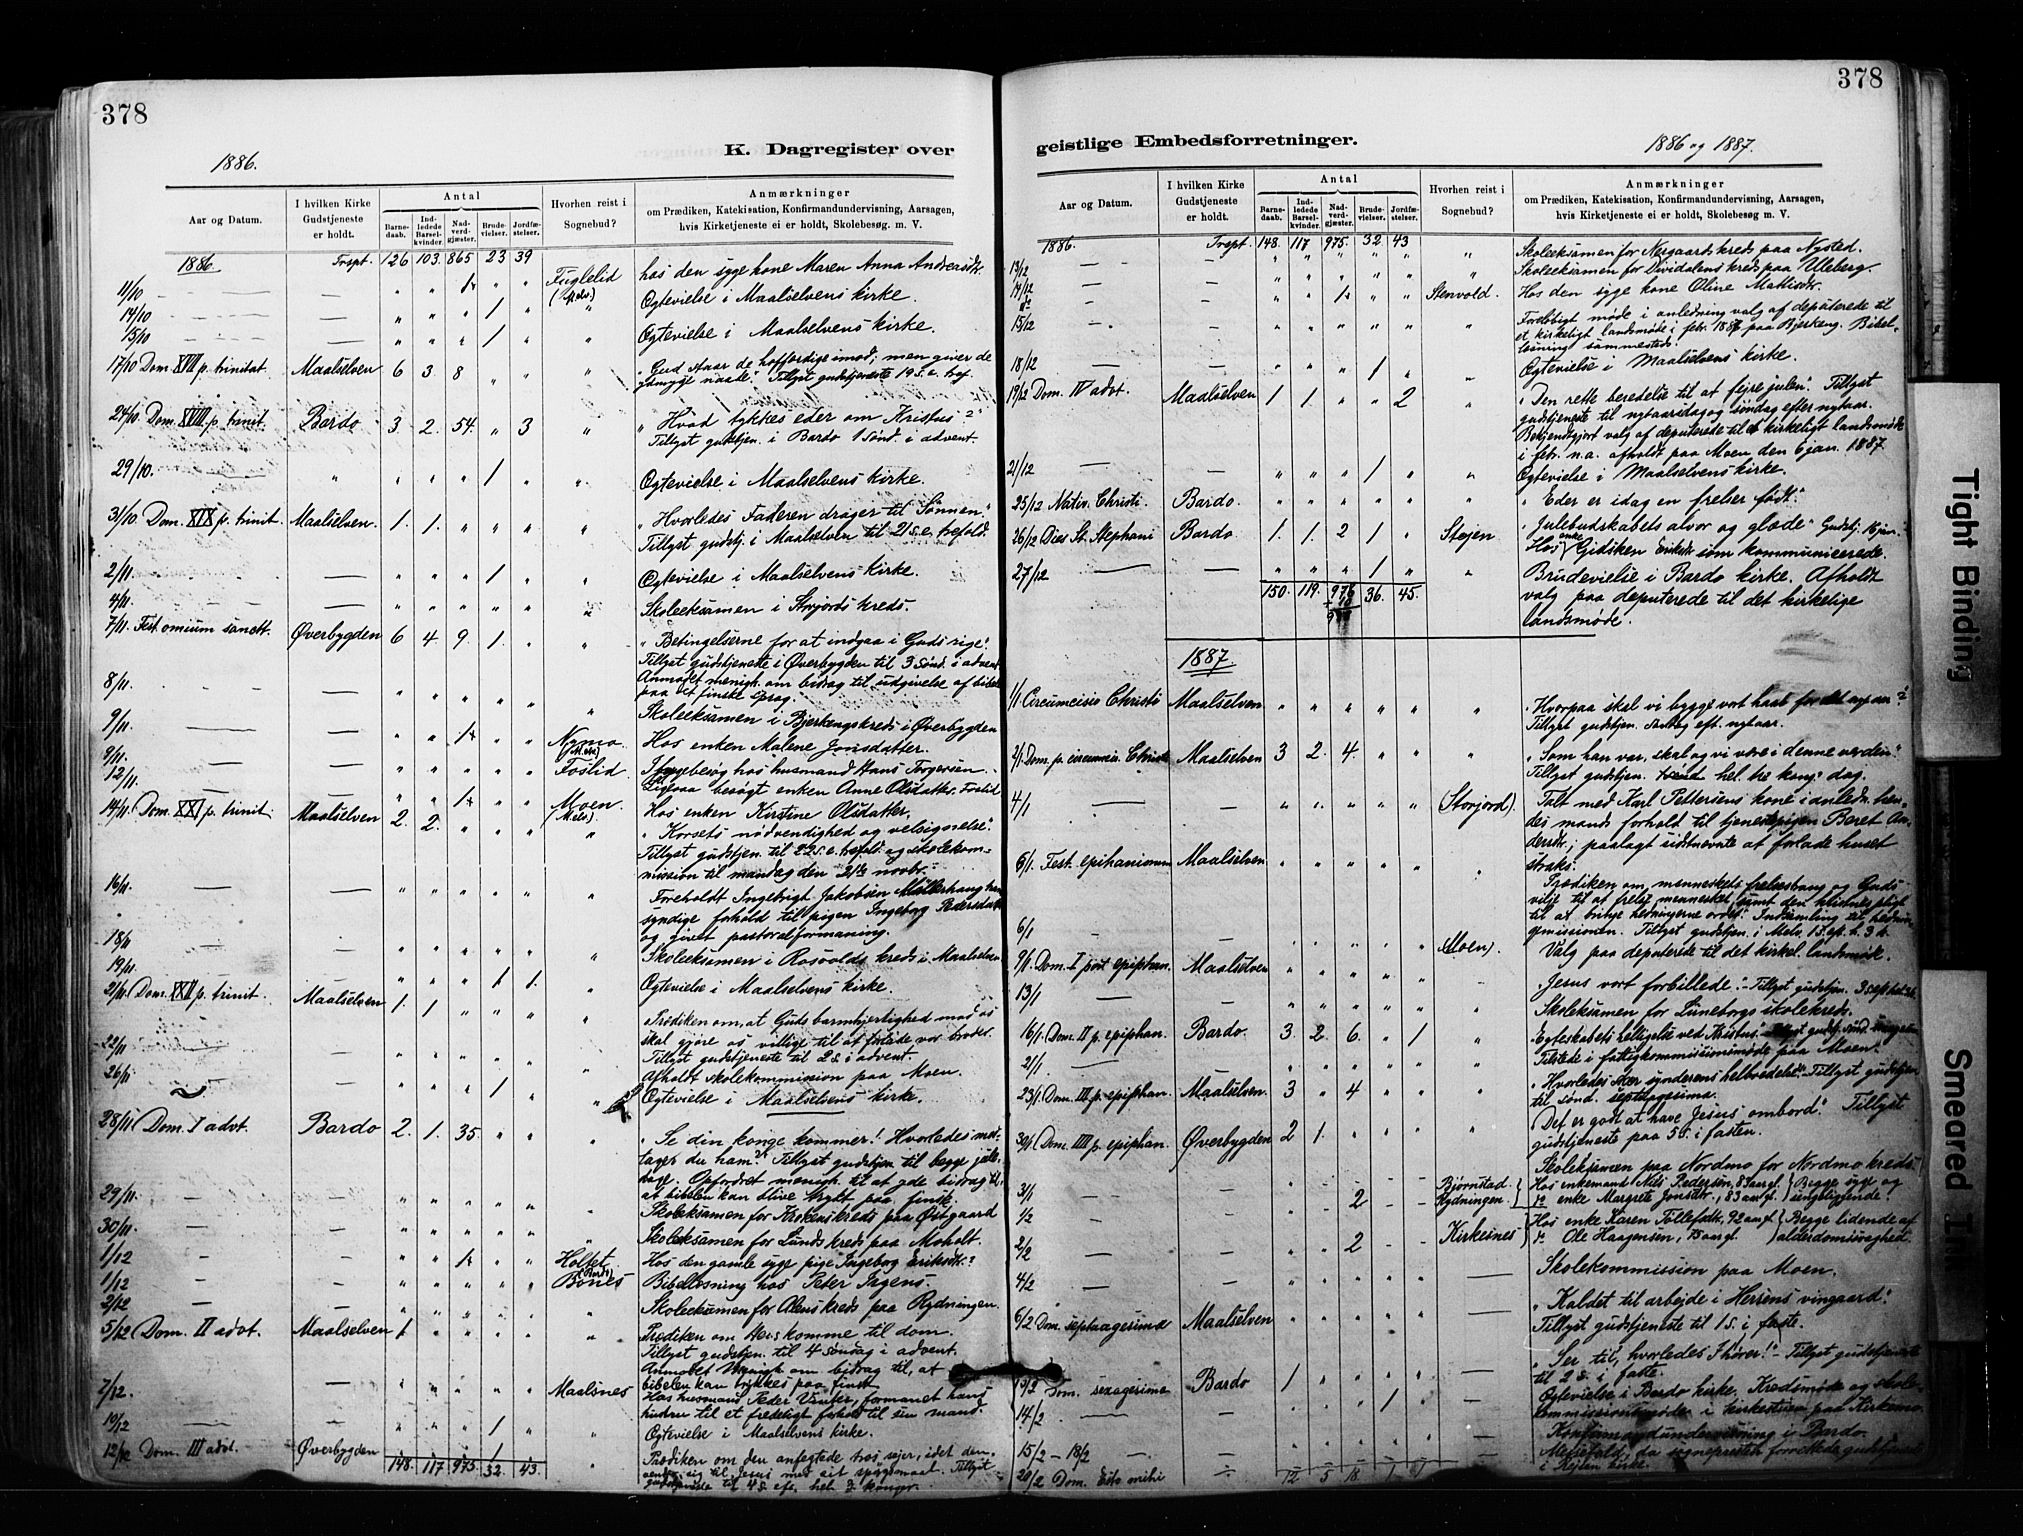 378
K. Dagregister over
1886.
Aar og Datum.
I hvilken Kirke Gudstjeneste er holdt.
Antal
Barnedaab.
Indledede Barselkvinder.
Nadverdgjæster.
Brudevielser.
Jordfæstelser.
Hvorhen reist i Sognebud?
Anmærkninger
om Prædiken, Katekisation, Konfirmandundervisning, Aarsagen,
hvis Kirketjeneste ei er holdt, Skolebesøg. m. V.
1886 Trspt. 126 103 865 23 39
11/10 — — " " " " Fuglelid hos den syge kone Maren Anna Andreasdtr.
14/10 — — " " " 1 " " Ogtevielse i Maalselvens kirke.
15/10 — — " " " 1 " " Ogtevielse i Maalselvens kirke.
17/10 Dom. XVII p. trinitat. Maalselven 6 3 8 " " " "Gud staar de hoffærdige imod; men giver de
ydmyge naade." Tillyst gudstjeneste 19 s. e. tref.
24/10 Dom. XVIII p. trinit. Bardo 3 2 54 " 3 " "Hvad tykkes eder om Kristus?"
Tillyst gudstjen. i Bardo 1 sønd. i advent.
29/10. " " " " 1 " " Ogtevielse i Maalselvens kirke.
31/10. Dom. XIX p. trinit. Maalselven. 1. 1. " " " " "Hvorledes Faderen drager til Sønnen."
Tillyst gudstj. i Maalselven til 21 s. e. trefold.
2/11. — — " " " 1 " " Ogtevielse i Maalselvens kirke.
4/11. — — " " " " " " Skoleeksamen i Storjords kreds.
7/11. Fest. omium sanct. Øverbygden 6 4 9. 1. " " "Betingelserne for at indgaa i Guds rige."
Tillyst gudstjeneste i Øverbygden til 3 sønd. i advent.
Anmodet menigh. om bidrag til udgivelse af bibelen
paa et finske sprog.
8/11. " " " " " " Skoleeksamen i Bjerkengskreds i Øverbygden
9/11. — — " " " " Hos enken Malene Jonsdatter.
9/11. — — " " " " " Foslid
12/11. besøgt enken Anne Olsdatter, Foslid
Moen (Mels). Hos enken Kirstine Olsdatter.
14/11. Dom. XXI p. trinit. Maalselven 2. 2. " " " " "Korsets nødvendighed og velsignelse."
Tillyst gudstjen. til 22 s. e. trefold. og skolekom-
mission til mandag den 21de novbr.
16/11 — — " " " " " " Foreholdt Ingebrigt Jakobsen hans
syndige forhold til pigen Ingeborg Pedersdatter
og givet pastoralformaning.
18/11 — — " " " " " " Skoleeksamen i Rosvolds kreds i Maalselven
19/11. — — " " " 1 1. " Ogtevielse i Maalselvens kirke.
21/11 Dom. XXII p. trinit. Maalselven 1. 1 " " " " Prædiken om, at Guds barmhjertighed mod os
skal gjøre os villige til at forlade vor broder.
Tillyst gudstjeneste til 2 s. i advent.
22/11 — — " " " " " " Afholdt skolekommission paa Moen.
26/11 — — " " " 1 " " Ogtevielse i Maalselvens kirke.
28/11 Dom. I advt. Bardo 2. 1. 35. " " " "Se din konge kommer! Hvorledes mod-
tager du ham?" Tillyst gudstjen. til begge jule-
dage. Opfordret menigh. til at yde bidrag til,
at bibelen kan blive trykt paa finsk.
29/11. — — " " " " " " Skoleeksamen for Krokens kreds paa Østgaard
30/11. — — " " " " " " Skoleeksamen for Lunds kreds paa Moholt.
1/12 — — " " " " Holtet Hos den gamle syge pige Ingeborg Eriksdtr.
1/12 — — " " " " " Bones Bibellæsning hos Peder Ingens.
2/12 — — " " " " " " Skoleeksamen for Alens kreds paa Rydningen.
5/12 Dom. II advt. Maalselven 1 " " " " " Prædiken om komme til dom.
Tillyst gudstjen. til 4 søndag i advent.
Anmodet menigh. om bidrag til, at
bibelen kan trykkes paa finsk.
7/12. " " " " " Maalsnes Hos husmand Peder formanet hans
hustru til et fredeligt forhold til sin mand.
10/12 — — " " " 1 " " Ogtevielse i Maalselvens kirke.
12/12 Dom. III advt. Øverbygden 1 Prædiken om den anfægtede tros seier, idet den
vender sig til Jesus med sit spørgsmaal. Tillyst
gudstjeneste til 4 s. efr. hel. 3 konger.
148. 117 975. 32. 43.
378
geistlige Embedsforretninger.
1886 og 1887.
Aar og Datum.
I hvilken Kirke Gudstjeneste er holdt.
Antal
Barnedaab.
Indledede Barselkvinder.
Nadverdgjæster.
Brudevielser.
Jordfæstelser.
Hvorhen reist i Sognebud?
Anmærkninger
om Prædiken, Katekisation, Konfirmandundervisning, Aarsagen,
hvis Kirketjeneste ei er holdt, Skolebesøg m. V.
1886. Trspt. 148. 117 975. 32 43 " Skoleeksamen for Nergaards kreds paa Nysted.
13/12 — — " " " " " " Skoleeksamen for Dividalens kreds paa Uleberg.
14/12 — — " " " " Stenvold. Hos den syge kone Oline Mathisdtr.
15/12 — — " " " " " " Foreløbigt møde i anledning valg af deputerede til
et kirkeligt landsmøde i febr. 1887 paa Bjerkeng. Bibel-
læsning sammesteds.
18/12 — — " " " 1 " " Ogtevielse i Maalselvens kirke.
19/12 Dom. IV advt. Maalselven 1. 1. " " 2 " "Den rette beredelse til at feire julen". Tillyst
gudstjeneste til nytaarsdag og søndag efter nytaar.
Bekjendtgjort valg af deputerede til et kirkeligt landsmøde
i febr. n.a. afholdt paa Moen den 6 jan. 1887.
21/12 — — " " " 1 " " Ogtevielse i Maalselvens kirke.
25/12 Nativ. Christi Bardo. " " " " " " "Eder er idag en frelser født."
26/12 Dies St. Stephani Bardo. 1. 1. 2 1 " Stejen "Julebudskabets alvor og glæde" Gudstj. 16 jan.
Hos enke Gidsken Eriksdtr. som kommunicerede.
27/12 — — " " " 1 " " Brudevielse i Bardo kirke. Afholdt
valg paa deputerede til det kirkelige
landsmøde.
150. 119. 976 36. 45.
1887.
1/1 Circumcisio Christi Maalselven " " " " " " "Hvorpaa skal vi bygge vort haab for det nye aar?"
Tillyst gudstjen. søndag eft. nytaar.
2/1. Dom. p. circumcis. Christi Maalselven 3 2. 4. " " " "Som han var, skal og vi være i denne verden"
Tillyst gudstjen. hel. tre kong. dag.
4/1 — — " " " " " (Storjord). Talt med Karl Pettersens kone i anledn. hen-
des mands forhold til tjenestepigen Beret An-
dersdtr.; paalagt sidstnævnte at forlade huset
straks.
6/1. Fest. epihaniorum Maalselven " " " " " Prædiken om menneskets frelsestrang og Guds
vilje til at frelse mennesket, samt den kristnes pligt
til at bringe hedningerne ordet. Indsamling til hednin-
gemissionen. Tillyst gudstjen. i Mels. 1 s. ep. h. 3 k.
6/1 — — " " " " " (Moen). Valg paa deputerede til det kirkel. landsmøde.
9/1. Dom. I post epiphan. Maalselven " " " " " "Jesus vort forbillede." - Tillyst gudstjen. 3 s. ep. hel. 3 k.
13/1 — — " " " " " " Skoleeksamen for Luneborgs skolekreds.
16/1. Dom. II p. epiphan. Bardo. 3 2. 6. " 1 " "Egteskabets helligelse ved Kristus."
21/1 — — " " " " " " Tilstede i fattigkommissionsmøde paa Moen.
23/1. Dom. III p. epiphan. Maalselven. 3 " 4 " " " "Hvorledes sker synderens helbredelse" - Tillyst gudstjen.
til sønd. septuagesima.
30/1. Dom. IIII p. epiphan. Øverbygden 2 1. " " " " "Det er godt at have Jesus ombord." Tillyst
gudstjeneste paa 5 s. i fasten.
31/1 Skoleeksamen paa Nordmo for Nordmo kreds.
1/2 — — 2 - - Bjørnstad Rydningen. Hos enkemand Nils Pedersen, 83 aar gl. Begge syge og
do. enke Margrete Jonsdtr., 83 aar gl. sengeliggende.
2/2 — — " " 2 - - Kirkesnes Hos enke Karen Tollefsdtr., 92 aar gl. Begge lidende af
do. Ole Haagensen, 75 aar gl. alderdomssvaghed.
4/2 — — " " " " " — Skolekommission paa Moen.
6/2 Dom. septuagesima Maalselven " " " " " — "Kaldet til arbejde i Herrens vingaard."
Tillyst gudstjeneste til 1 s. i faste.
13/2 Dom. sexagesima Bardo 1 " " " " — "Ser til, hvorledes I hører!" - Tillyst gudstjeneste
til 2 s. i faste.
14/2. — — " " " 1 " — Ogtevielse i Bardo kirke. Kredsmøde og skole-
kommissionsmøde i kirkestuen paa Kirkemo.
15/2 – 18/2 — Konfirmandundervisning i Bardo.
20/2 Dom. Esto mihi — Messefald, da sognepresten forrettede gudstjeneste
i kirke.
12 5 18 1 1
Tight Binding
Smeared Ink